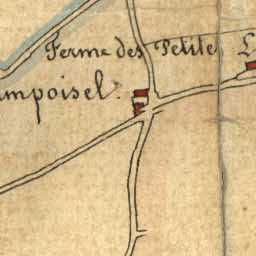 Ferme des Petite
mpoisel.
L